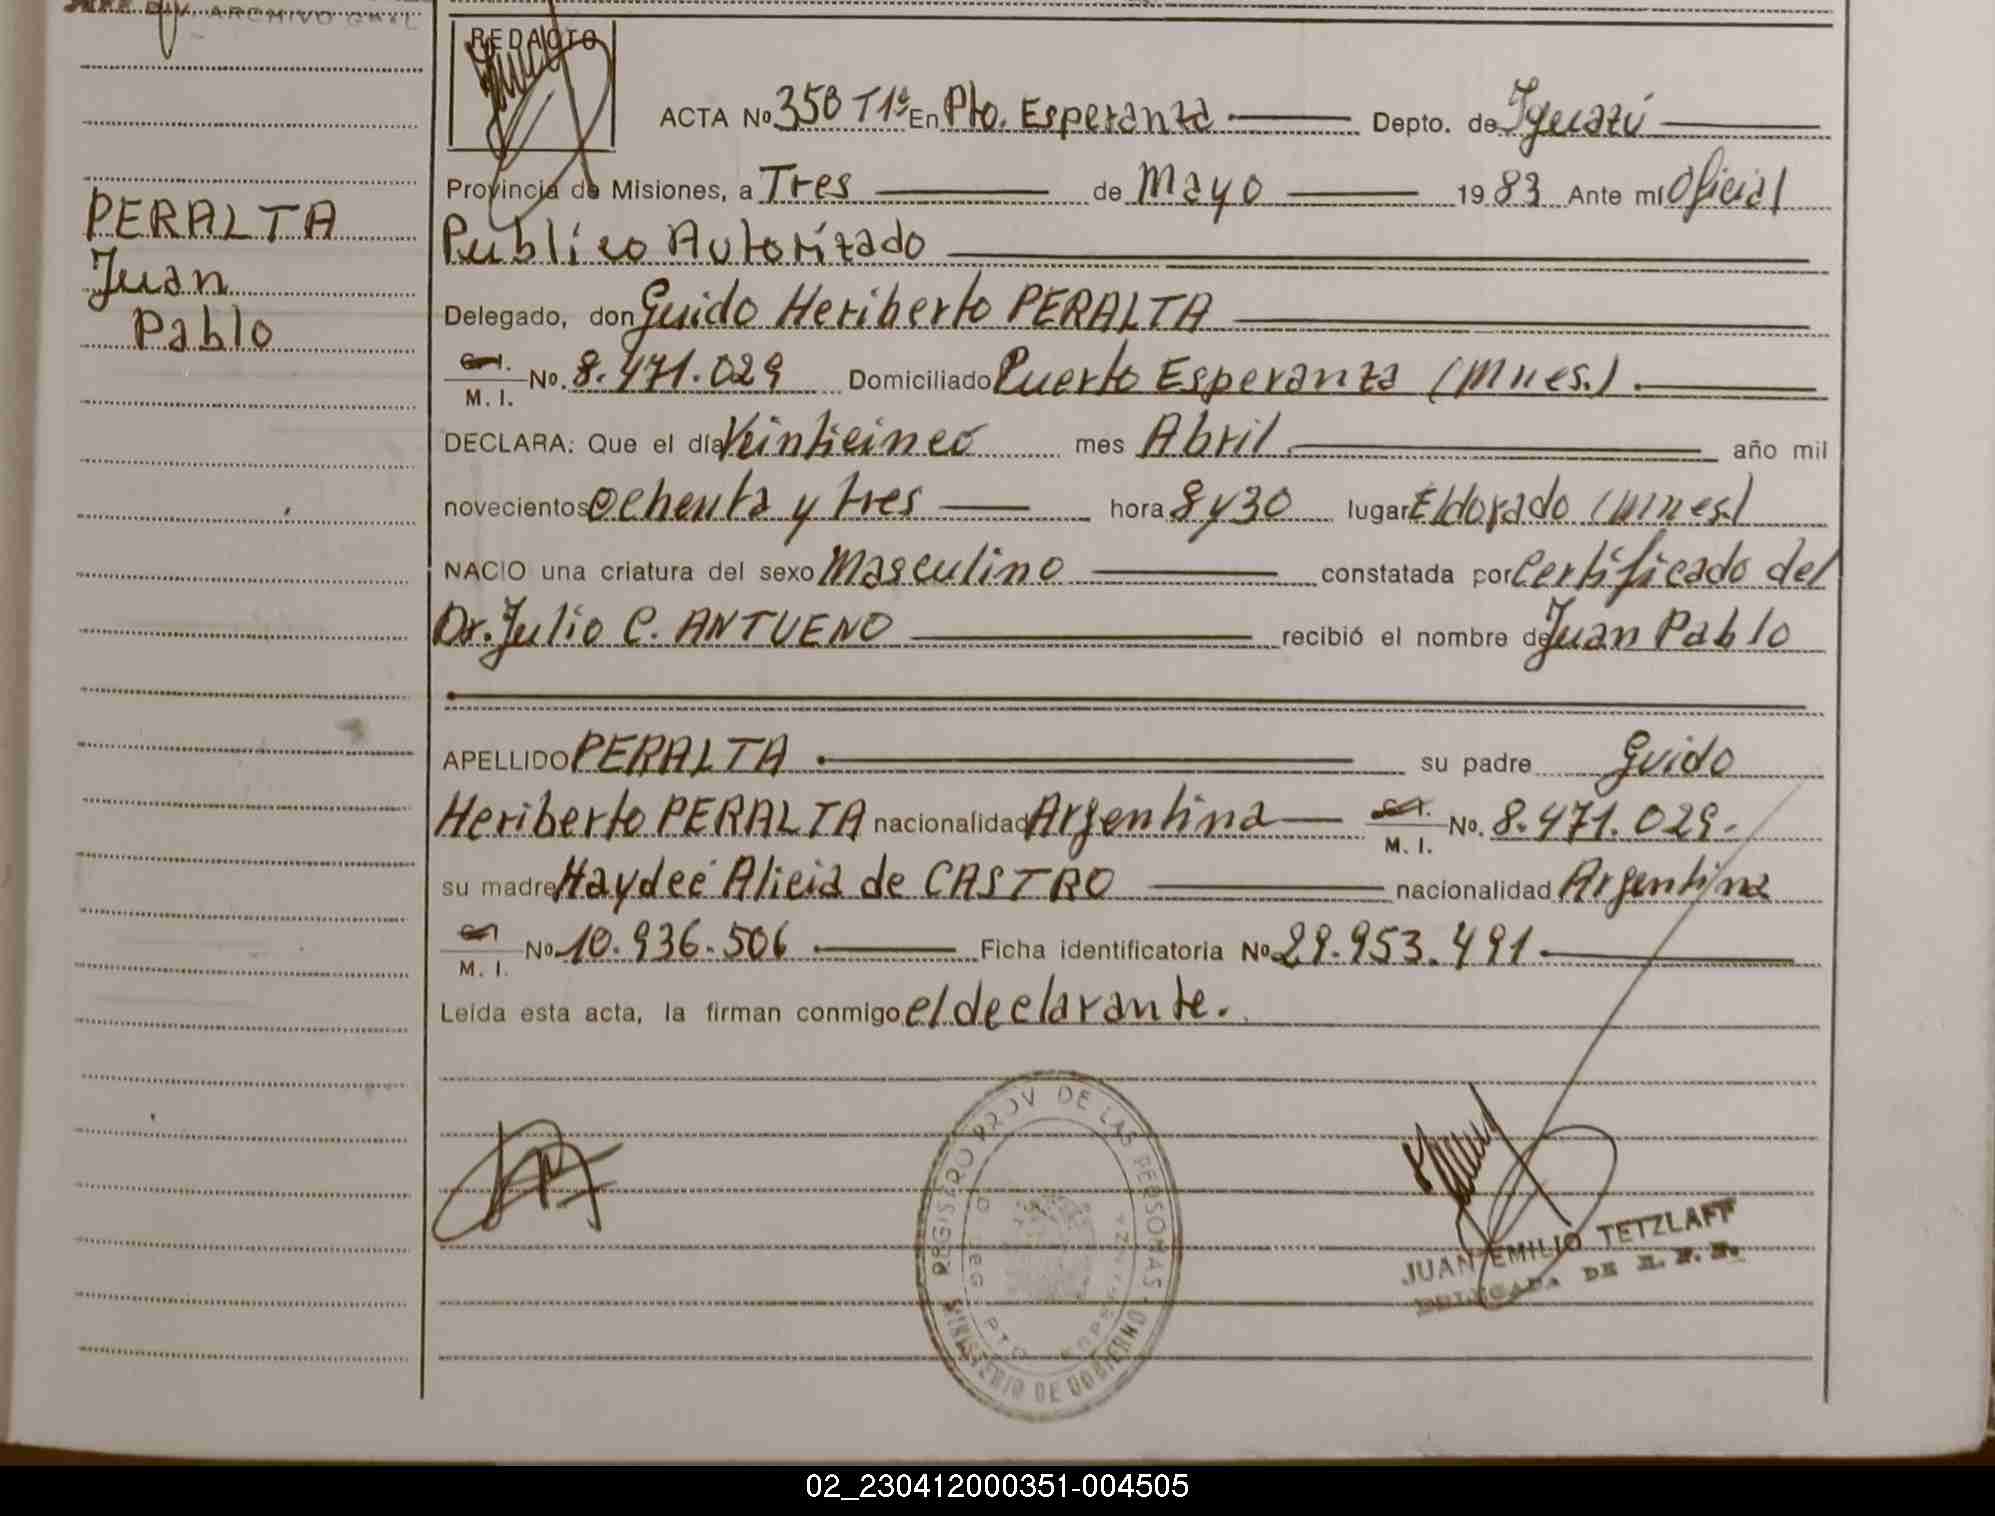 DIV. ARCHIVO GRAL
REDACTO
ACTA No 358 T1º En Pto. Esperanza Depto. de Iguazú
Provincia de Misiones, a Tres de Mayo 1983 Ante mí Oficial
Publico Autorizado
Delegado, don Guido Heriberto PERALTA
M. I. No. 8.471.029 Domiciliado Puerto Esperanza (Mnes.).
DECLARA: Que el día Veinticinco mes Abril año mil
novecientos Ochenta y tres hora 8 y 30 lugar Eldorado (Mnes.)
NACIO una criatura del sexo Masculino constatada por Certificado del
Dr. Julio C. ANTUENO recibió el nombre de Juan Pablo
APELLIDO PERALTA su padre Guido
Heriberto PERALTA nacionalidad Argentina M. I. No. 8.471.029.
su madre Haydeé Alicia de CASTRO nacionalidad Argentina
M. I. No 10.936.506 Ficha identificatoria No 29.953.491
Leída esta acta, la firman conmigo el declarante.
PERALTA
Juan
Pablo
REGISTRO PROV DE LAS PERSONAS
MINISTERIO DE GOBIERNO
JUAN EMILIO TETZLAFF
02_230412000351-004505